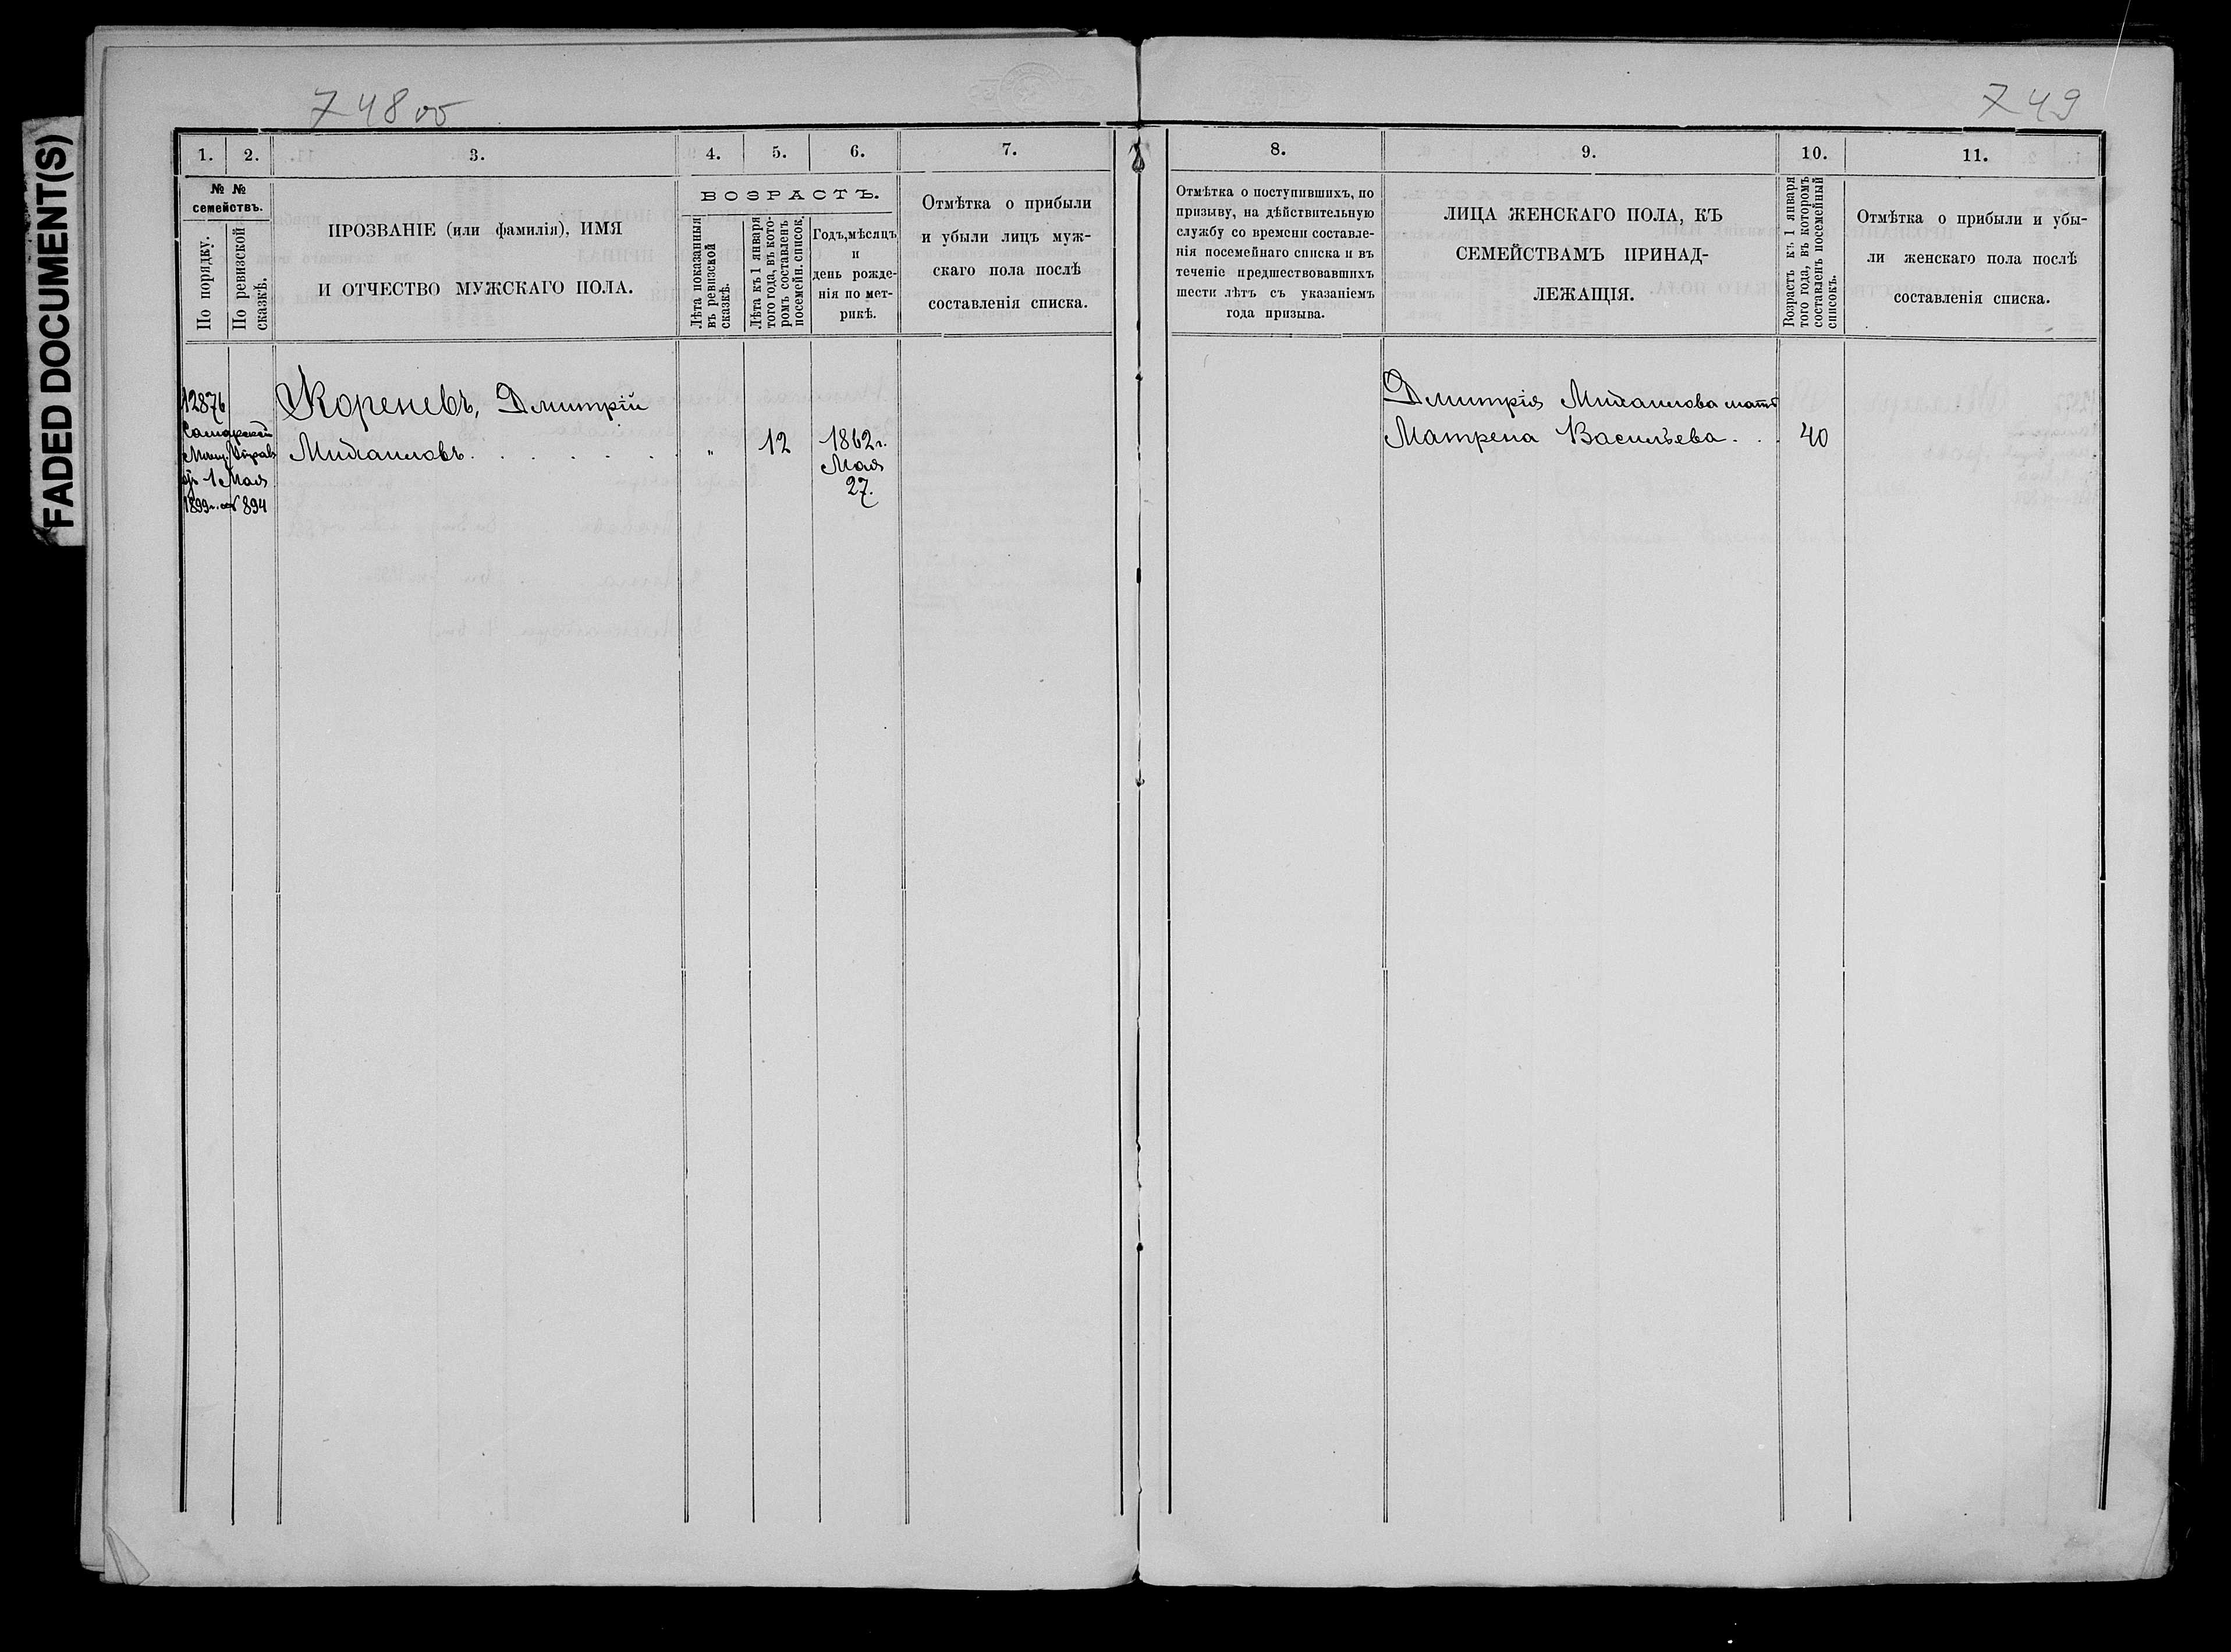 FADED DOCUMENT(S)
748 об
749
1.
2.
3.
4.
5.
6.
7.
8.
9.
10.
11.
№ №
семействъ.
По порядку.
По ревизской
сказкѣ.
ПРОЗВАНІЕ (или фамилія), ИМЯ
И ОТЧЕСТВО МУЖСКАГО ПОЛА.
ВОЗРАСТЪ.
Лѣта показанныя
въ ревизской
сказкѣ.
Лѣта къ 1 января
того года, въ кото-
ромъ составленъ
посемейн. список.
Годъ, мѣсяцъ
и
день рожде-
нія по мет-
рикѣ.
Отмѣтка о прибыли
и убыли лицъ муж-
скаго пола послѣ
составленія списка.
Отмѣтка о поступившихъ, по
призыву, на дѣйствительную
службу со времени составле-
нія посемейнаго списка и въ
теченіе предшествовавшихъ
шести лѣтъ съ указаніемъ
года призыва.
ЛИЦА ЖЕНСКАГО ПОЛА, КЪ
СЕМЕЙСТВАМЪ ПРИНАД-
ЛЕЖАЩІЯ.
Возрастъ къ 1 января
того года, въ которомъ
составленъ посемейный
списокъ.
Отмѣтка о прибыли и убы-
ли женскаго пола послѣ
составленія списка.
12876
Самарской
Мѣщ. Управ
1 Мая
1899 г. № 894
Кореневъ, Дмитрій
Михаиловъ . . . . . . " 12 1862 г.
Мая
27.
Дмитрія Михаилова мать
Матрена Васильева . . . 40